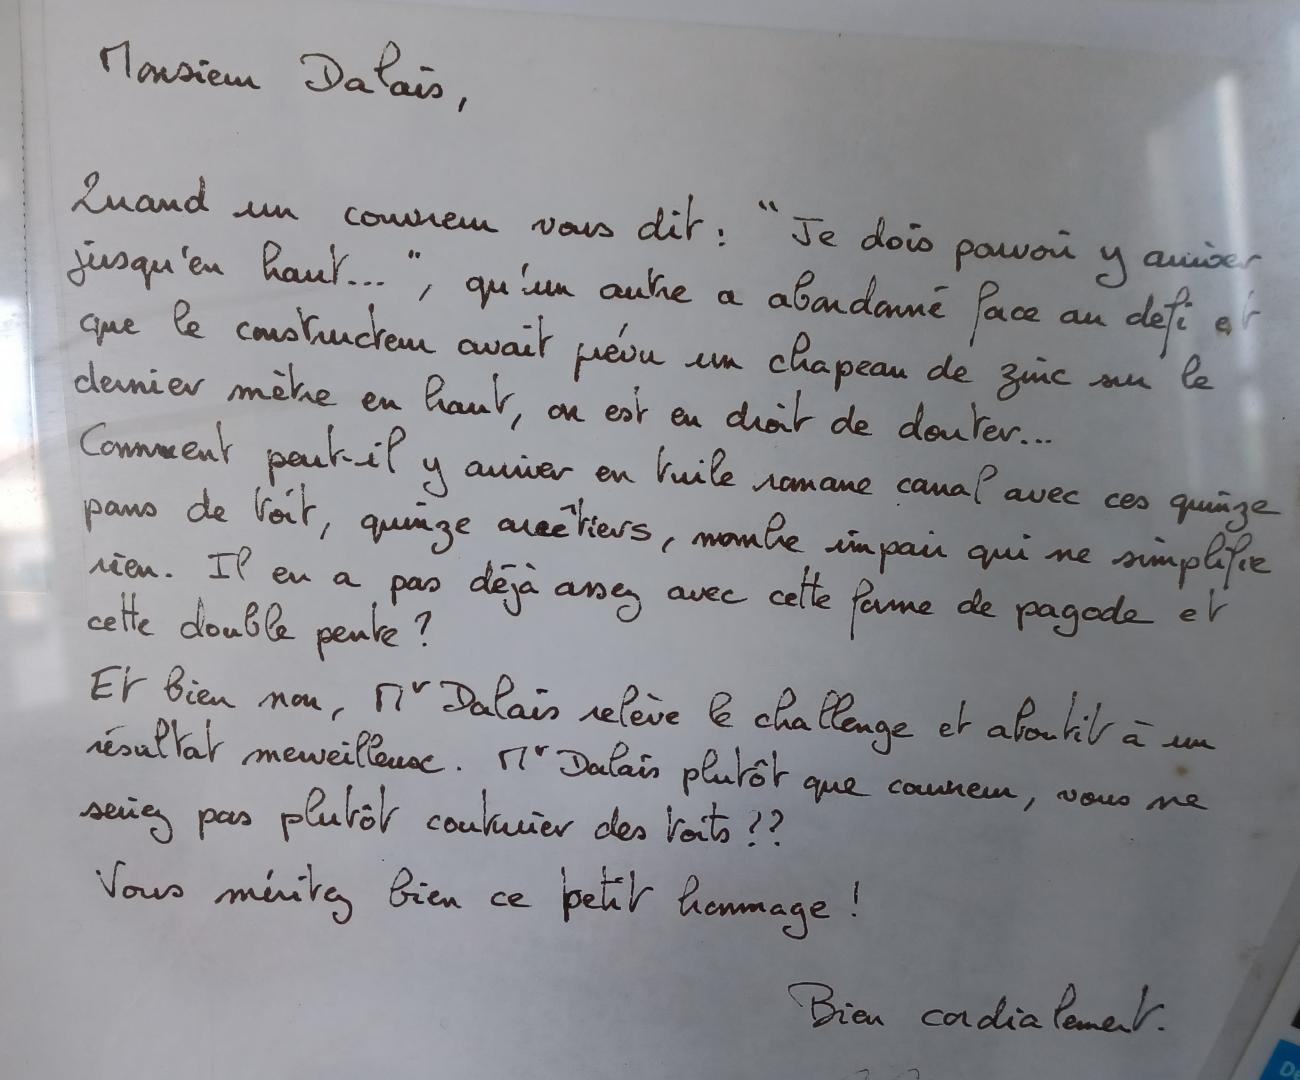 Monsieur Dalais,
Quand un couvreur vous dit : "Je dois pouvoir y arriver
jusqu'en haut...", qu'un autre a abandonné face au défi et
que le constructeur avait prévu un chapeau de zinc sur le
dernier mètre en haut, on est en droit de douter...
Comment peut-il y arriver en tuile romane canal avec ces quinze
pans de toit, quinze arêtiers, nombre impair qui ne simplifie
rien. Il en a pas déjà assez avec cette forme de pagode et
cette double pente ?
Et bien non, Mr Dalais relève le challenge et aboutit à un
résultat merveilleux. Mr Dalais plutôt que couvreur, vous ne
seriez pas plutôt couturier des toits ??
Vous méritez bien ce petit hommage !
Bien cordialement.